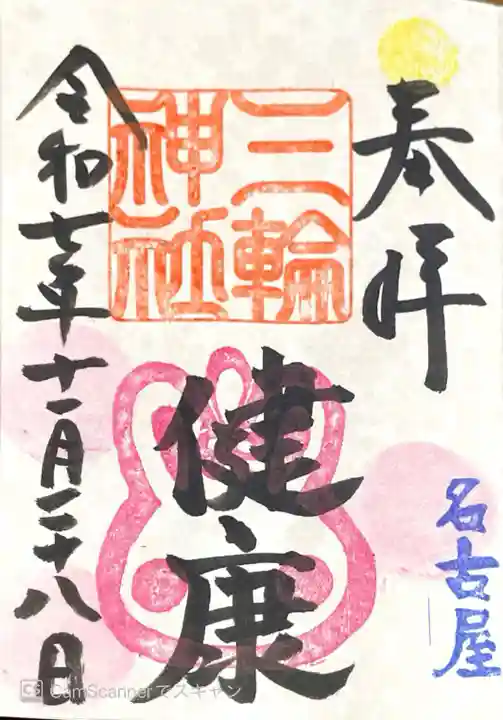 奉拝
名古屋
三輪
神社
健康
令和七年十一月二十八日
CS CamScannerでスキャン